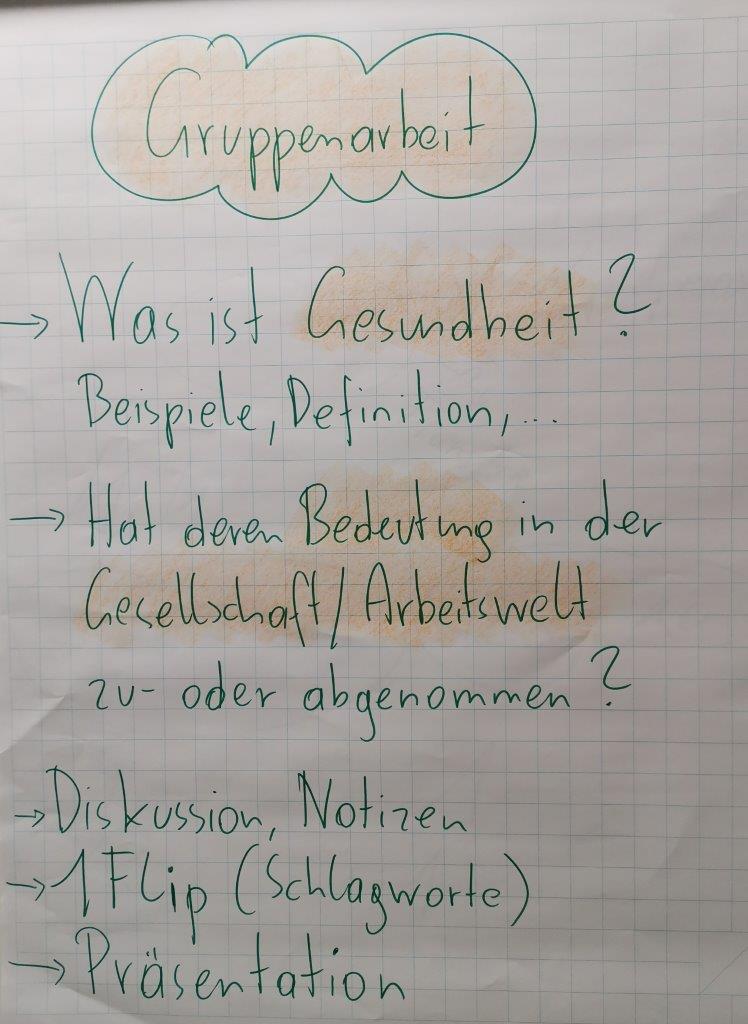 Gruppenarbeit
→ Was ist Gesundheit?
Beispiele, Definition, ...
→ Hat deren Bedeutung in der
Gesellschaft/Arbeitswelt
zu- oder abgenommen?
→ Diskussion, Notizen
→ 1 Flip (Schlagworte)
→ Präsentation